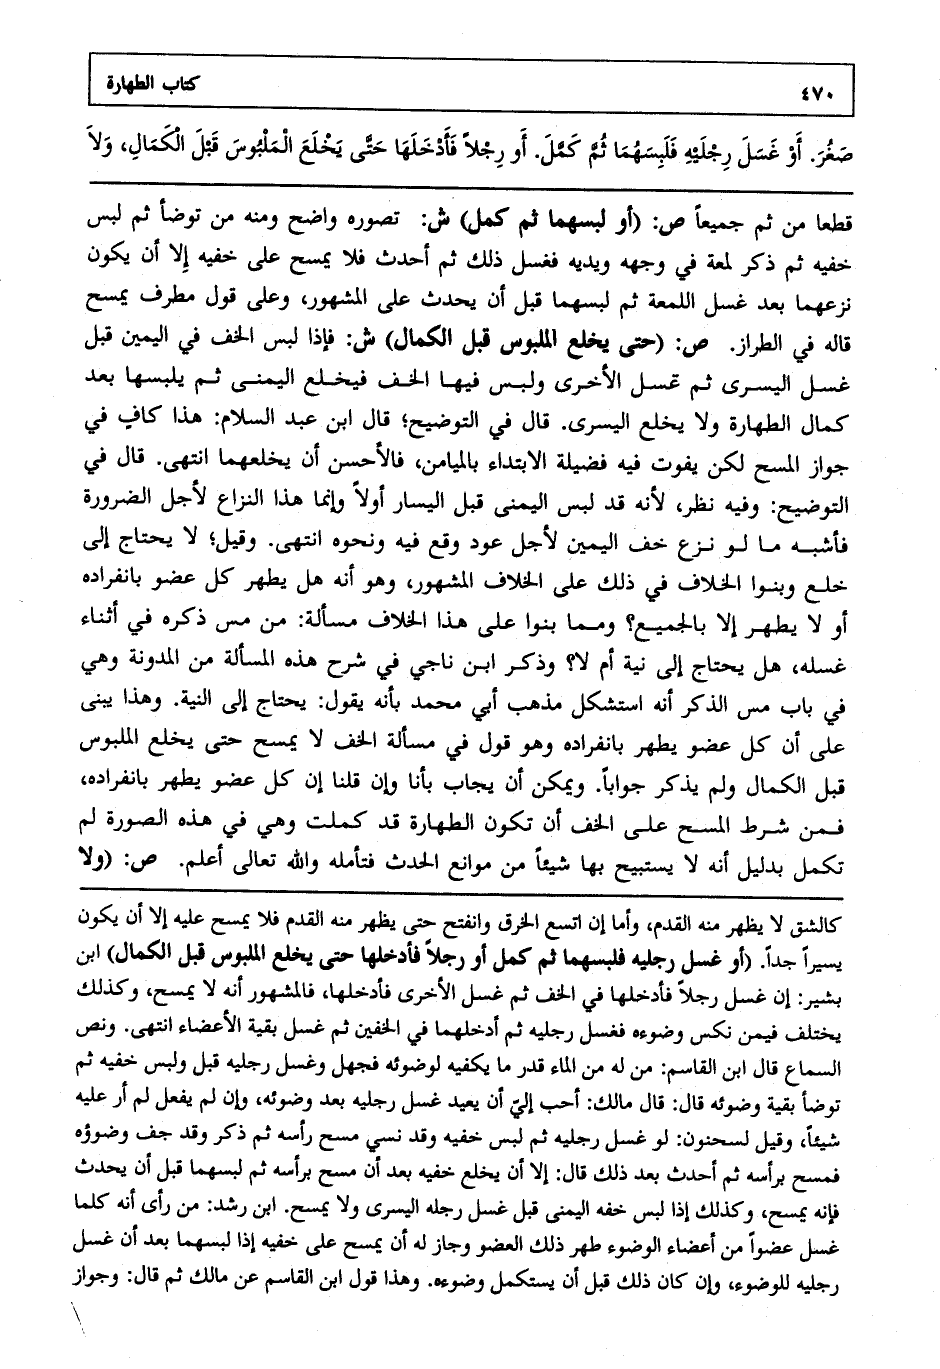 ٤٧٠ كتاب الطهارة
صَغُرَ. أَوْ غَسَلَ رِجْلَيْهِ فَلَبِسَهُمَا ثُمَّ كَمَّلَ. أَو رِجْلاً فَأَدْخَلَهَا حَتَّى يَخْلَعَ الْمَلْبُوسَ قَبْلَ الْكَمَالِ، وَلاَ
قطعا من ثم جميعاً ص: (أو لبسهما ثم كمل) ش: تصوره واضح ومنه من توضأ ثم لبس
خفيه ثم ذكر لمعة في وجهه ويديه فغسل ذلك ثم أحدث فلا يمسح على خفيه إِلا أن يكون
نزعهما بعد غسل اللمعة ثم لبسهما قبل أن يحدث على المشهور، وعلى قول مطرف يمسح
قاله في الطراز. ص: (حتى يخلع الملبوس قبل الكمال) ش: فإذا لبس الخف في اليمين قبل
غسل اليسرى ثم غسل الأخرى ولبس فيها الخف فيخلع اليمنى ثم يلبسها بعد
كمال الطهارة ولا يخلع اليسرى. قال في التوضيح؛ قال ابن عبد السلام: هذا كافٍ في
جواز المسح لكن يفوت فيه فضيلة الابتداء بالميامن، فالأحسن أن يخلعهما انتهى. قال في
التوضيح: وفيه نظر، لأنه قد لبس اليمنى قبل اليسار أولاً وإنما هذا النزاع لأجل الضرورة
فأشبه ما لو نزع خف اليمين لأجل عود وقع فيه ونحوه انتهى. وقيل؛ لا يحتاج إلى
خلع وبنوا الخلاف في ذلك على الخلاف المشهور، وهو أنه هل يطهر كل عضو بانفراده
أو لا يطهر إلا بالجميع؟ ومما بنوا على هذا الخلاف مسألة: من مس ذكره في أثناء
غسله، هل يحتاج إلى نية أم لا؟ وذكر ابن ناجي في شرح هذه المسألة من المدونة وهي
في باب مس الذكر أنه استشكل مذهب أبي محمد بأنه يقول: يحتاج إلى النية. وهذا يبنى
على أن كل عضو يطهر بانفراده وهو قول في مسألة الخف لا يمسح حتى يخلع الملبوس
قبل الكمال ولم يذكر جواباً. ويمكن أن يجاب بأنا وإن قلنا إن كل عضو يطهر بانفراده،
فمن شرط المسح على الخف أن تكون الطهارة قد كملت وهي في هذه الصورة لم
تكمل بدليل أنه لا يستبيح بها شيئاً من موانع الحدث فتأمله والله تعالى أعلم. ص: (ولا
كالشق لا يظهر منه القدم، وأما إن اتسع الخرق وانفتح حتى يظهر منه القدم فلا يمسح عليه إلا أن يكون
يسيراً جداً. (أو غسل رجليه فلبسهما ثم كمل أو رجلاً فأدخلها حتى يخلع الملبوس قبل الكمال) ابن
بشير: إن غسل رجلاً فأدخلها في الخف ثم غسل الأخرى فأدخلها، فالمشهور أنه لا يمسح، وكذلك
يختلف فيمن نكس وضوءه فغسل رجليه ثم أدخلهما في الخفين ثم غسل بقية الأعضاء انتهى. ونص
السماع قال ابن القاسم: من له من الماء قدر ما يكفيه لوضوئه فجهل وغسل رجليه قبل ولبس خفيه ثم
توضأ بقية وضوئه قال: قال مالك: أحب إليّ أن يعيد غسل رجليه بعد وضوئه، وإن لم يفعل لم أر عليه
شيئاً، وقيل لسحنون: لو غسل رجليه ثم لبس خفيه وقد نسي مسح رأسه ثم ذكر وقد جف وضوؤه
فمسح برأسه ثم أحدث بعد ذلك قال: إلا أن يخلع خفيه بعد أن مسح برأسه ثم لبسهما قبل أن يحدث
فإنه يمسح، وكذلك إذا لبس خفه اليمنى قبل غسل رجله اليسرى ولا يمسح. ابن رشد: من رأى أنه كلما
غسل عضواً من أعضاء الوضوء طهر ذلك العضو وجاز له أن يمسح على خفيه إذا لبسهما بعد أن غسل
رجليه للوضوء، وإن كان ذلك قبل أن يستكمل وضوءه. وهذا قول ابن القاسم عن مالك ثم قال: وجواز